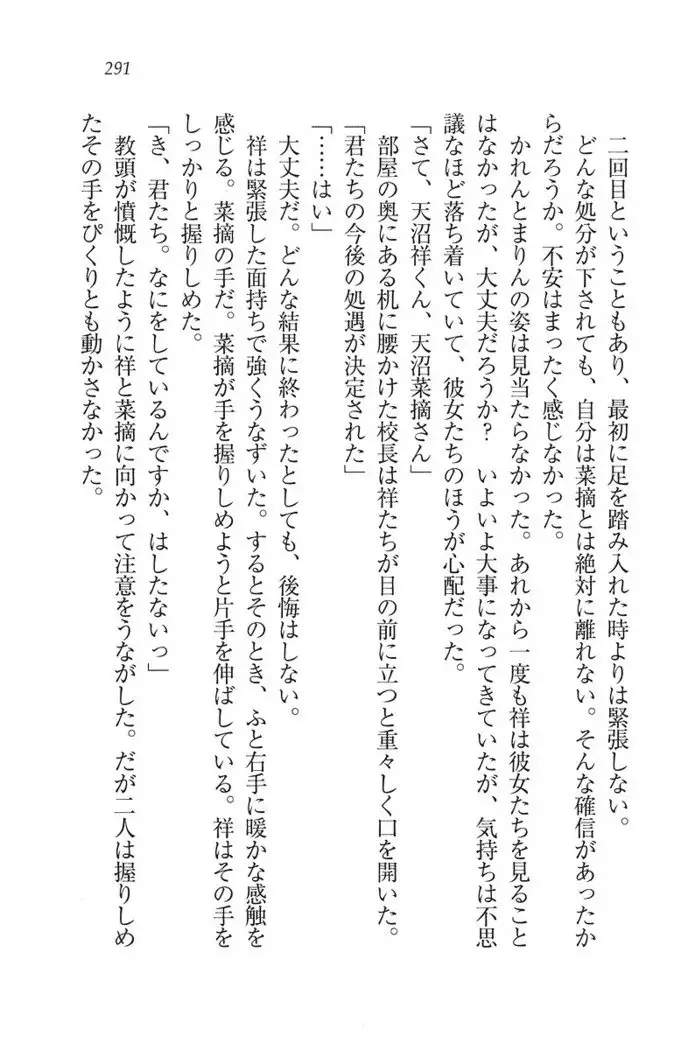 291
二回目ということもあり、最初に足を踏み入れた時よりは緊張しない。
どんな処分が下されても、自分は菜摘とは絶対に離れない。そんな確信があったか
らだろうか。不安はまったく感じなかった。
かれんとまりんの姿は見当たらなかった。あれから一度も祥は彼女たちを見ること
はなかったが、大丈夫だろうか？　いよいよ大事になってきていたが、気持ちは不思
議なほど落ち着いていて、彼女たちのほうが心配だった。
「さて、天沼祥くん、天沼菜摘さん」
部屋の奥にある机に腰かけた校長は祥たちが目の前に立つと重々しく口を開いた。
「君たちの今後の処遇が決定された」
「……はい」
大丈夫だ。どんな結果に終わったとしても、後悔はしない。
祥は緊張した面持ちで強くうなずいた。するとそのとき、ふと右手に暖かな感触を
感じる。菜摘の手だ。菜摘が手を握りしめようと片手を伸ばしている。祥はその手を
しっかりと握りしめた。
「き、君たち。なにをしているんですか、はしたないっ」
教頭が憤慨したように祥と菜摘に向かって注意をうながした。だが二人は握りしめ
たその手をぴくりとも動かさなかった。